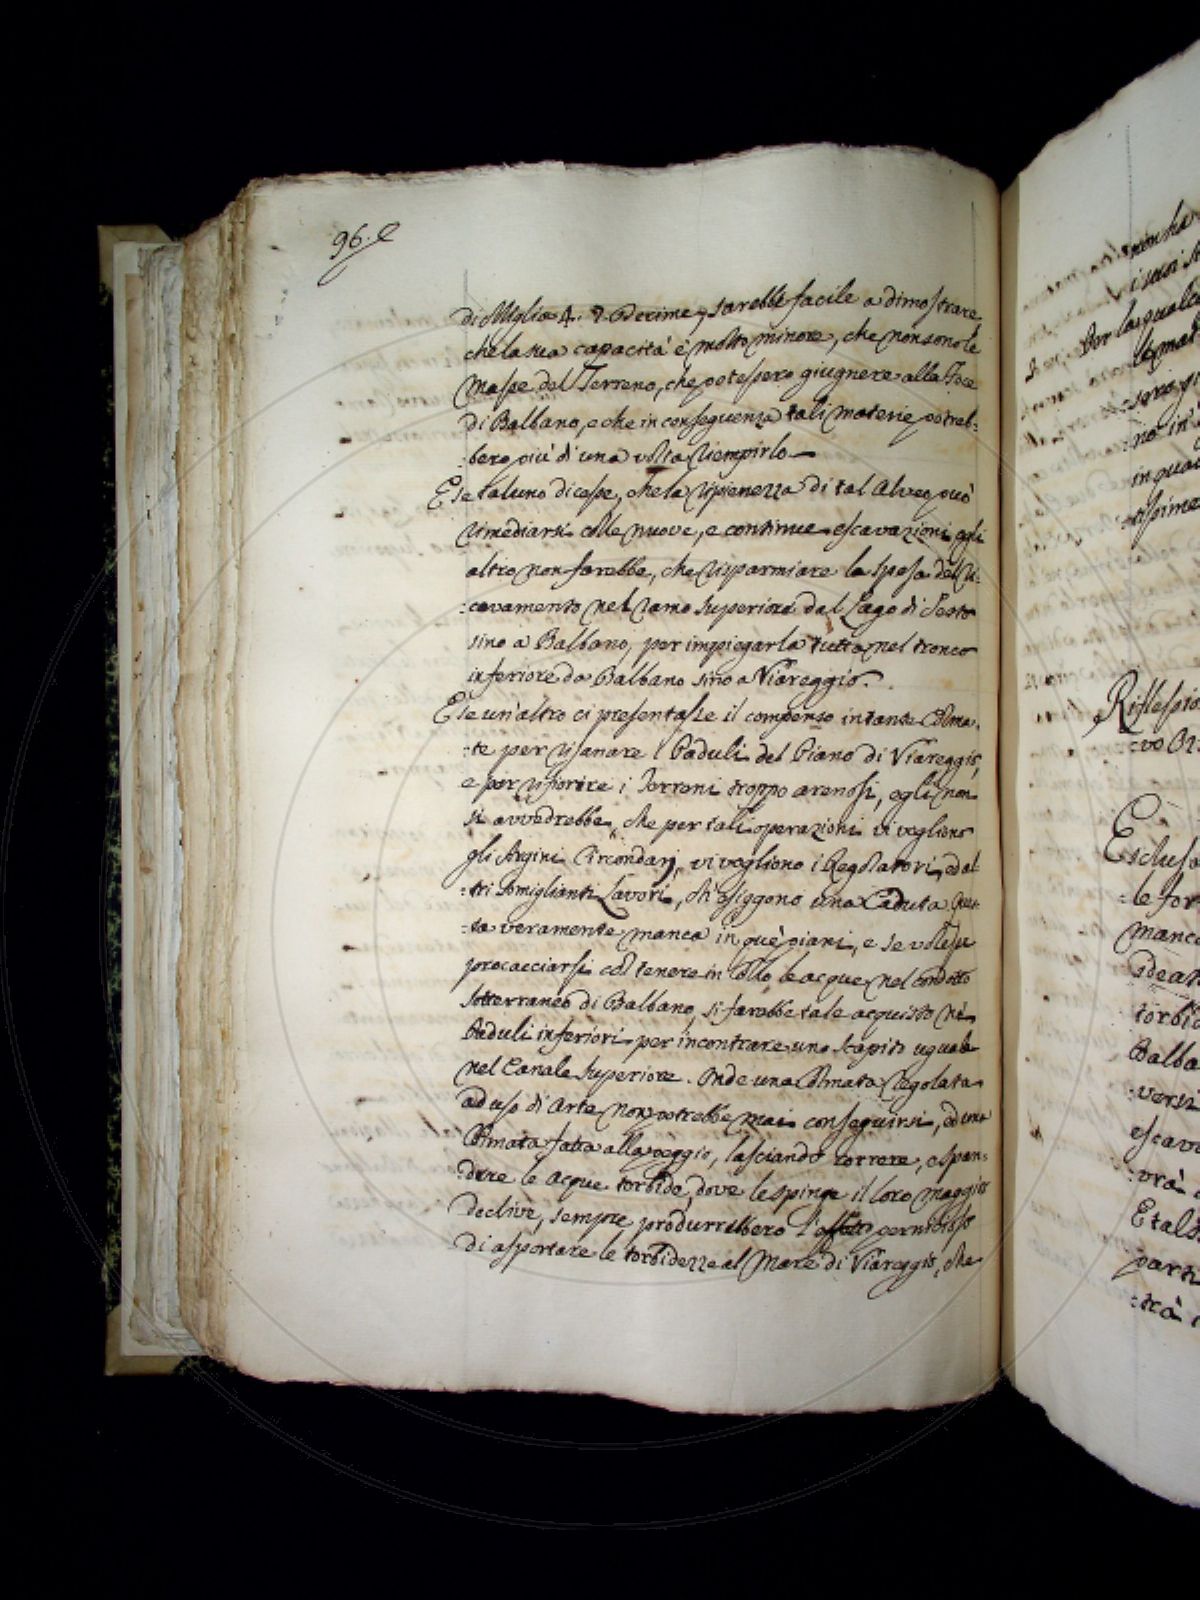 96. e
di Miglia 4. 7. Decime, sarebbe facile a dimostrare
che la sua capacità è molto minore, che non sono le
Masse del Terreno, che potessero giugnere alla Foce
di Balbano, e che in conseguenza tali materie potreb:
:bero più di una volta riempirlo.
E se taluno dicesse, che la ripienezza di tal Alveo può
rimediarsi colle nuove, e continue escavazioni, egli
altro non farebbe, che risparmiare la spesa del ri:
:cavamento nel ramo superiore dal Lago di Sesto
sino a Balbano, per impiegarla tutta nel tronco
inferiore da Balbano sino a Viareggio.
E se un'altro ci presentasse il compenso in tante Colma:
:te per risanare i Paduli del Piano di Viareggio,
e per rifiorire i Terreni troppo arenosi, egli non
si avvedrebbe, che per tali operazioni vi vogliono
gli Argini Circondarj, vi vogliono i Regolatori, ed al:
:tri somiglianti Lavori, ch'esiggono una Caduta. Ques:
:ta veramente manca in que' piani, e se volesse
procacciarsi col tenere in collo le acque nel condotto
sotterraneo di Balbano, si farebbe tale acquisto ne'
Paduli inferiori per incontrare uno scapito uguale
nel Canale superiore. Onde una Colmata regolata
ad uso di Arte non potrebbe mai conseguirsi, ed una
Colmata fatta alla peggio, lasciando correre, e span:
:dere le acque torbide, dove le spinge il loro maggior
declive, sempre produrrebbero l'effetto pernicioso
di asportare le torbidezze al Mare di Viareggio, che
non ha
i suoi
Per la qualc
le mat
no in
in qua
:tissime
Riflessio
Esclusa
:le for
manca
idear
torbid
Balba
:versi
escava
:vrà
E tal
parti
:trà